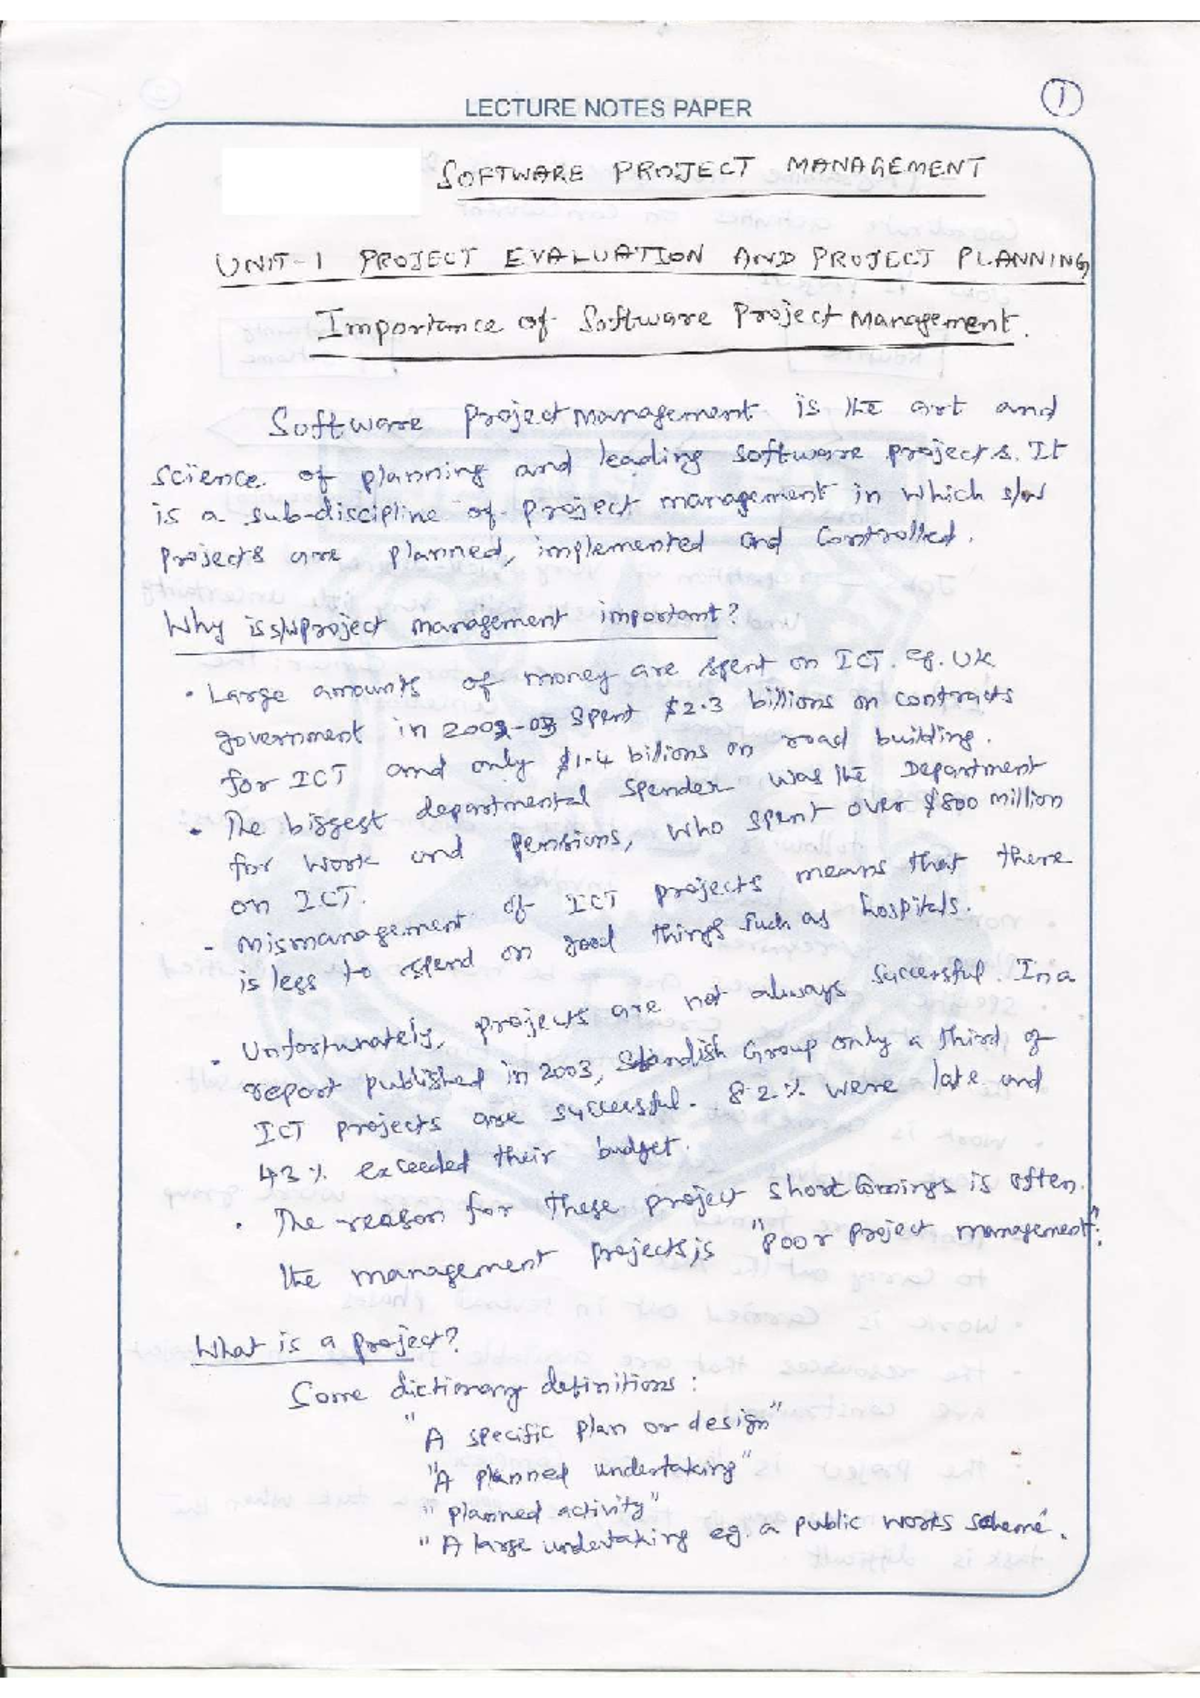 LECTURE NOTES PAPER
1
SOFTWARE PROJECT MANAGEMENT
UNIT-1 PROJECT EVALUATION AND PROJECT PLANNING
Importance of Software Project Management.
Software project management is the art and
science of planning and leading software projects. It
is a sub-discipline of project management in which s/w
projects are planned, implemented and controlled.
Why is s/w project management important?
• Large amounts of money are spent on ICT. eg. UK
government in 2002-03 spent $2.3 billions on contracts
for ICT and only $1.4 billions on road building.
• The biggest departmental spender was the Department
for work and pensions, who spent over $800 million
on ICT.
- Mismanagement of ICT projects means that there
is less to spend on good things such as hospitals.
• Unfortunately, projects are not always successful. In a
report published in 2003, Standish Group only a third of
ICT projects are successful. 82% were late and
43% exceeded their budget.
• The reason for these project shortcomings is often.
the management projects, is "poor project management".
What is a project?
Some dictionary definitions:
"A specific plan or design"
"A planned undertaking"
"planned activity"
"A large undertaking eg. a public works scheme.